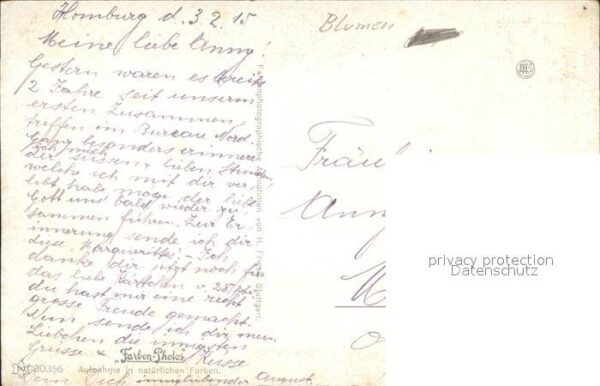 Homburg d. 3.2.15
Meine liebe Anny!
Gestern waren es bereits
2 Jahre seit unserm
ersten Zusammen-
treffen im Bureau Nord.
Ganz besonders erinnere
ich mich
der süssen & lieben Stunden,
welche ich mit dir ver-
lebt habe möge der liebe
Gott uns bald wieder zu-
sammen führen. Zur Er-
innerung sende ich dir
diese Margueritte. - Ich
danke dir jetzt noch für
das liebe Kärtchen v. 28.
du hast mir eine recht
grosse Freude gemacht.
Nun sende ich dir mein
Liebchen die innigsten
Grüsse & Küsse
Dein Dich innigliebender August
Blumen
Fräul
Anny
Farbenphotographische Aufnahmen von H. Stuttgart.
"Farben-Photos"
30356 Aufnahme in natürlichen Farben.
privacy protection
Datenschutz